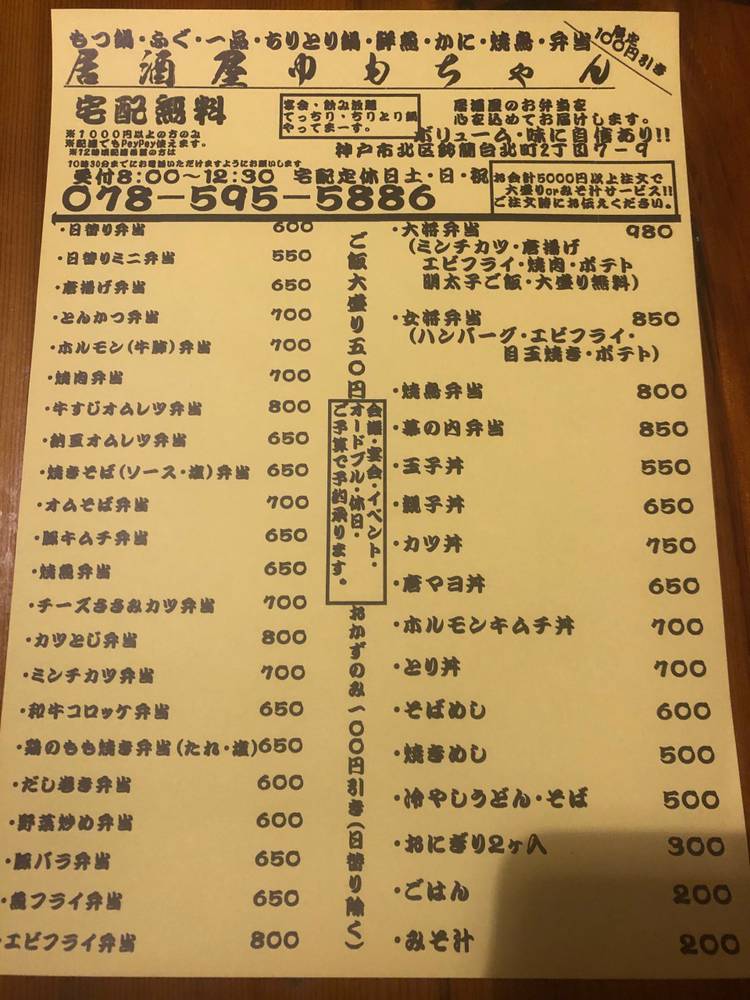 もつ鍋・ふぐ・一品・ちりとり鍋・鮮魚・かに・焼鳥・弁当
100円引き
居酒屋ゆもちゃん
宅配無料
※1000円以上の方のみ
※配達でもPayPay使えます。
※12時頃配達希望の方は
10時30分までにお電話いただけますようにお願いします
宴会・飲み放題
てっちり・ちりとり鍋
やってまーす。
居酒屋のお弁当を
心を込めてお届けします。
ボリューム・味に自信あり!!
神戸市北区鈴蘭台北町2丁目7-9
受付8:00~12:30 宅配定休日土・日・祝
078-595-5886
お会計5000円以上注文で
大盛りorみそ汁サービス!!
ご注文時にお伝えください。
・日替り弁当 600
・日替りミニ弁当 550
・唐揚げ弁当 650
・とんかつ弁当 700
・ホルモン(牛肺)弁当 700
・焼肉弁当 700
・牛すじオムレツ弁当 800
・納豆オムレツ弁当 650
・焼きそば(ソース・塩)弁当 650
・オムそば弁当 700
・豚キムチ弁当 650
・焼魚弁当 650
・チーズささみカツ弁当 700
・カツとじ弁当 800
・ミンチカツ弁当 700
・和牛コロッケ弁当 650
・鶏のもも焼き弁当(たれ・塩) 650
・だし巻き弁当 600
・野菜炒め弁当 600
・豚バラ弁当 650
・魚フライ弁当 650
・エビフライ弁当 800
ご飯大盛り五0円
会議・宴会・イベント・
オードブル・休日・
ご予算で予約承ります。
おかずのみ一00円引き(日替り除く)
・大将弁当 980
(ミンチカツ・唐揚げ
エビフライ・焼肉・ポテト
明太子ご飯・大盛り無料)
・女将弁当 850
(ハンバーグ・エビフライ・
目玉焼き・ポテト)
・焼鳥弁当 800
・幕の内弁当 850
・玉子丼 550
・親子丼 650
・カツ丼 750
・唐マヨ丼 650
・ホルモンキムチ丼 700
・とり丼 700
・そばめし 600
・焼きめし 500
・冷やしうどん・そば 500
・おにぎり2ヶ入 300
・ごはん 200
・みそ汁 200